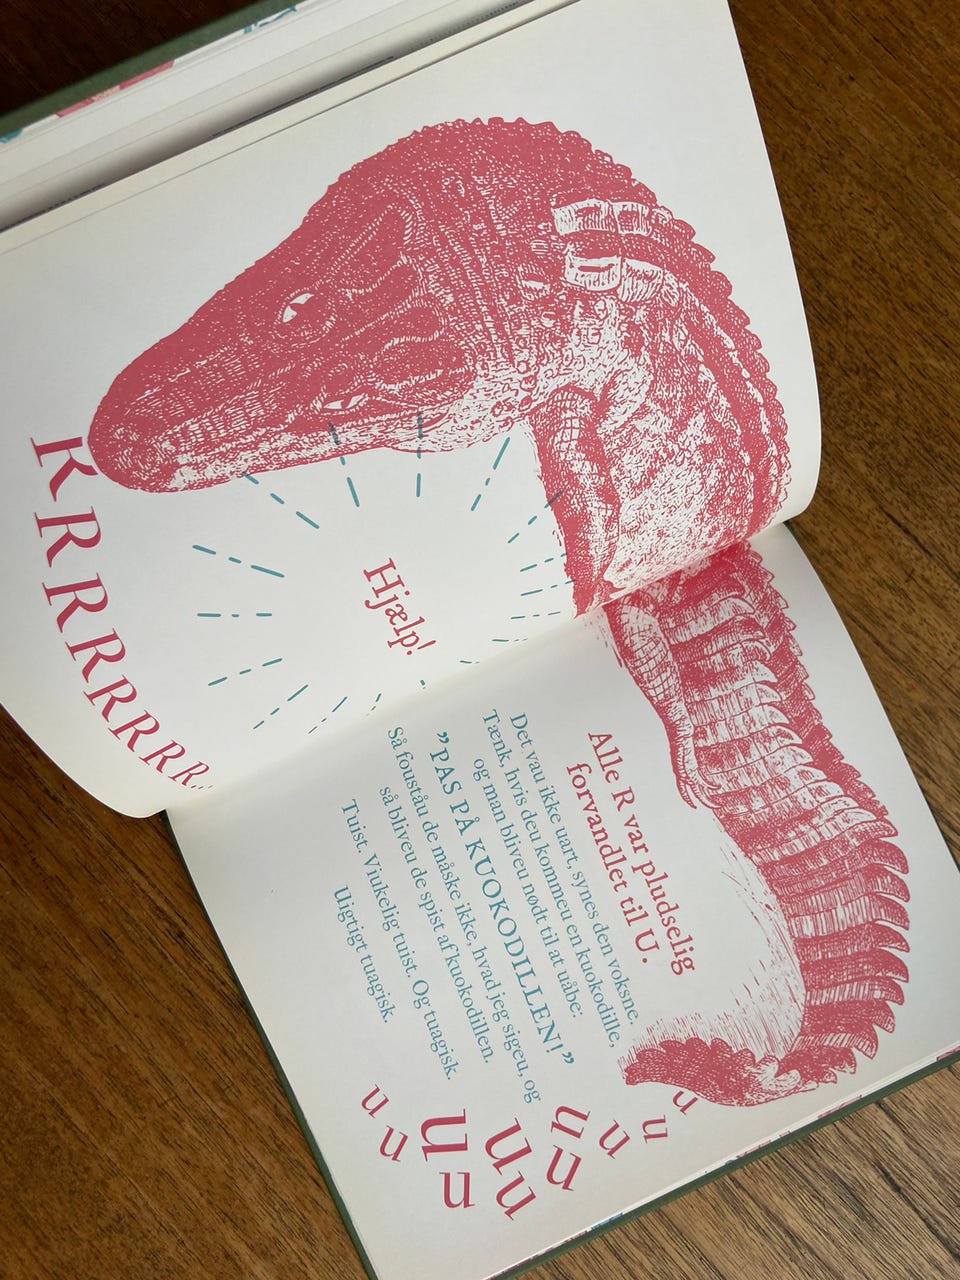 KRRRRRRRR
Hjælp!
Alle R var pludselig
forvandlet til U.
Det vau ikke uart, synes den voksne.
Tænk, hvis deu kommeu en kuokodille,
og man bliveu nødt til at uåbe:
”PAS PÅ KUOKODILLEN!”
Så fouståu de måske ikke, hvad jeg sigeu, og
så bliveu de spist af kuokodillen.
Tuist. Viukelig tuist. Og tuagisk.
Uigtigt tuagisk.
u u u u u u u u u u u